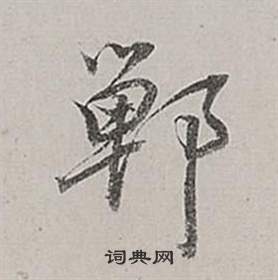 鄲
词典网